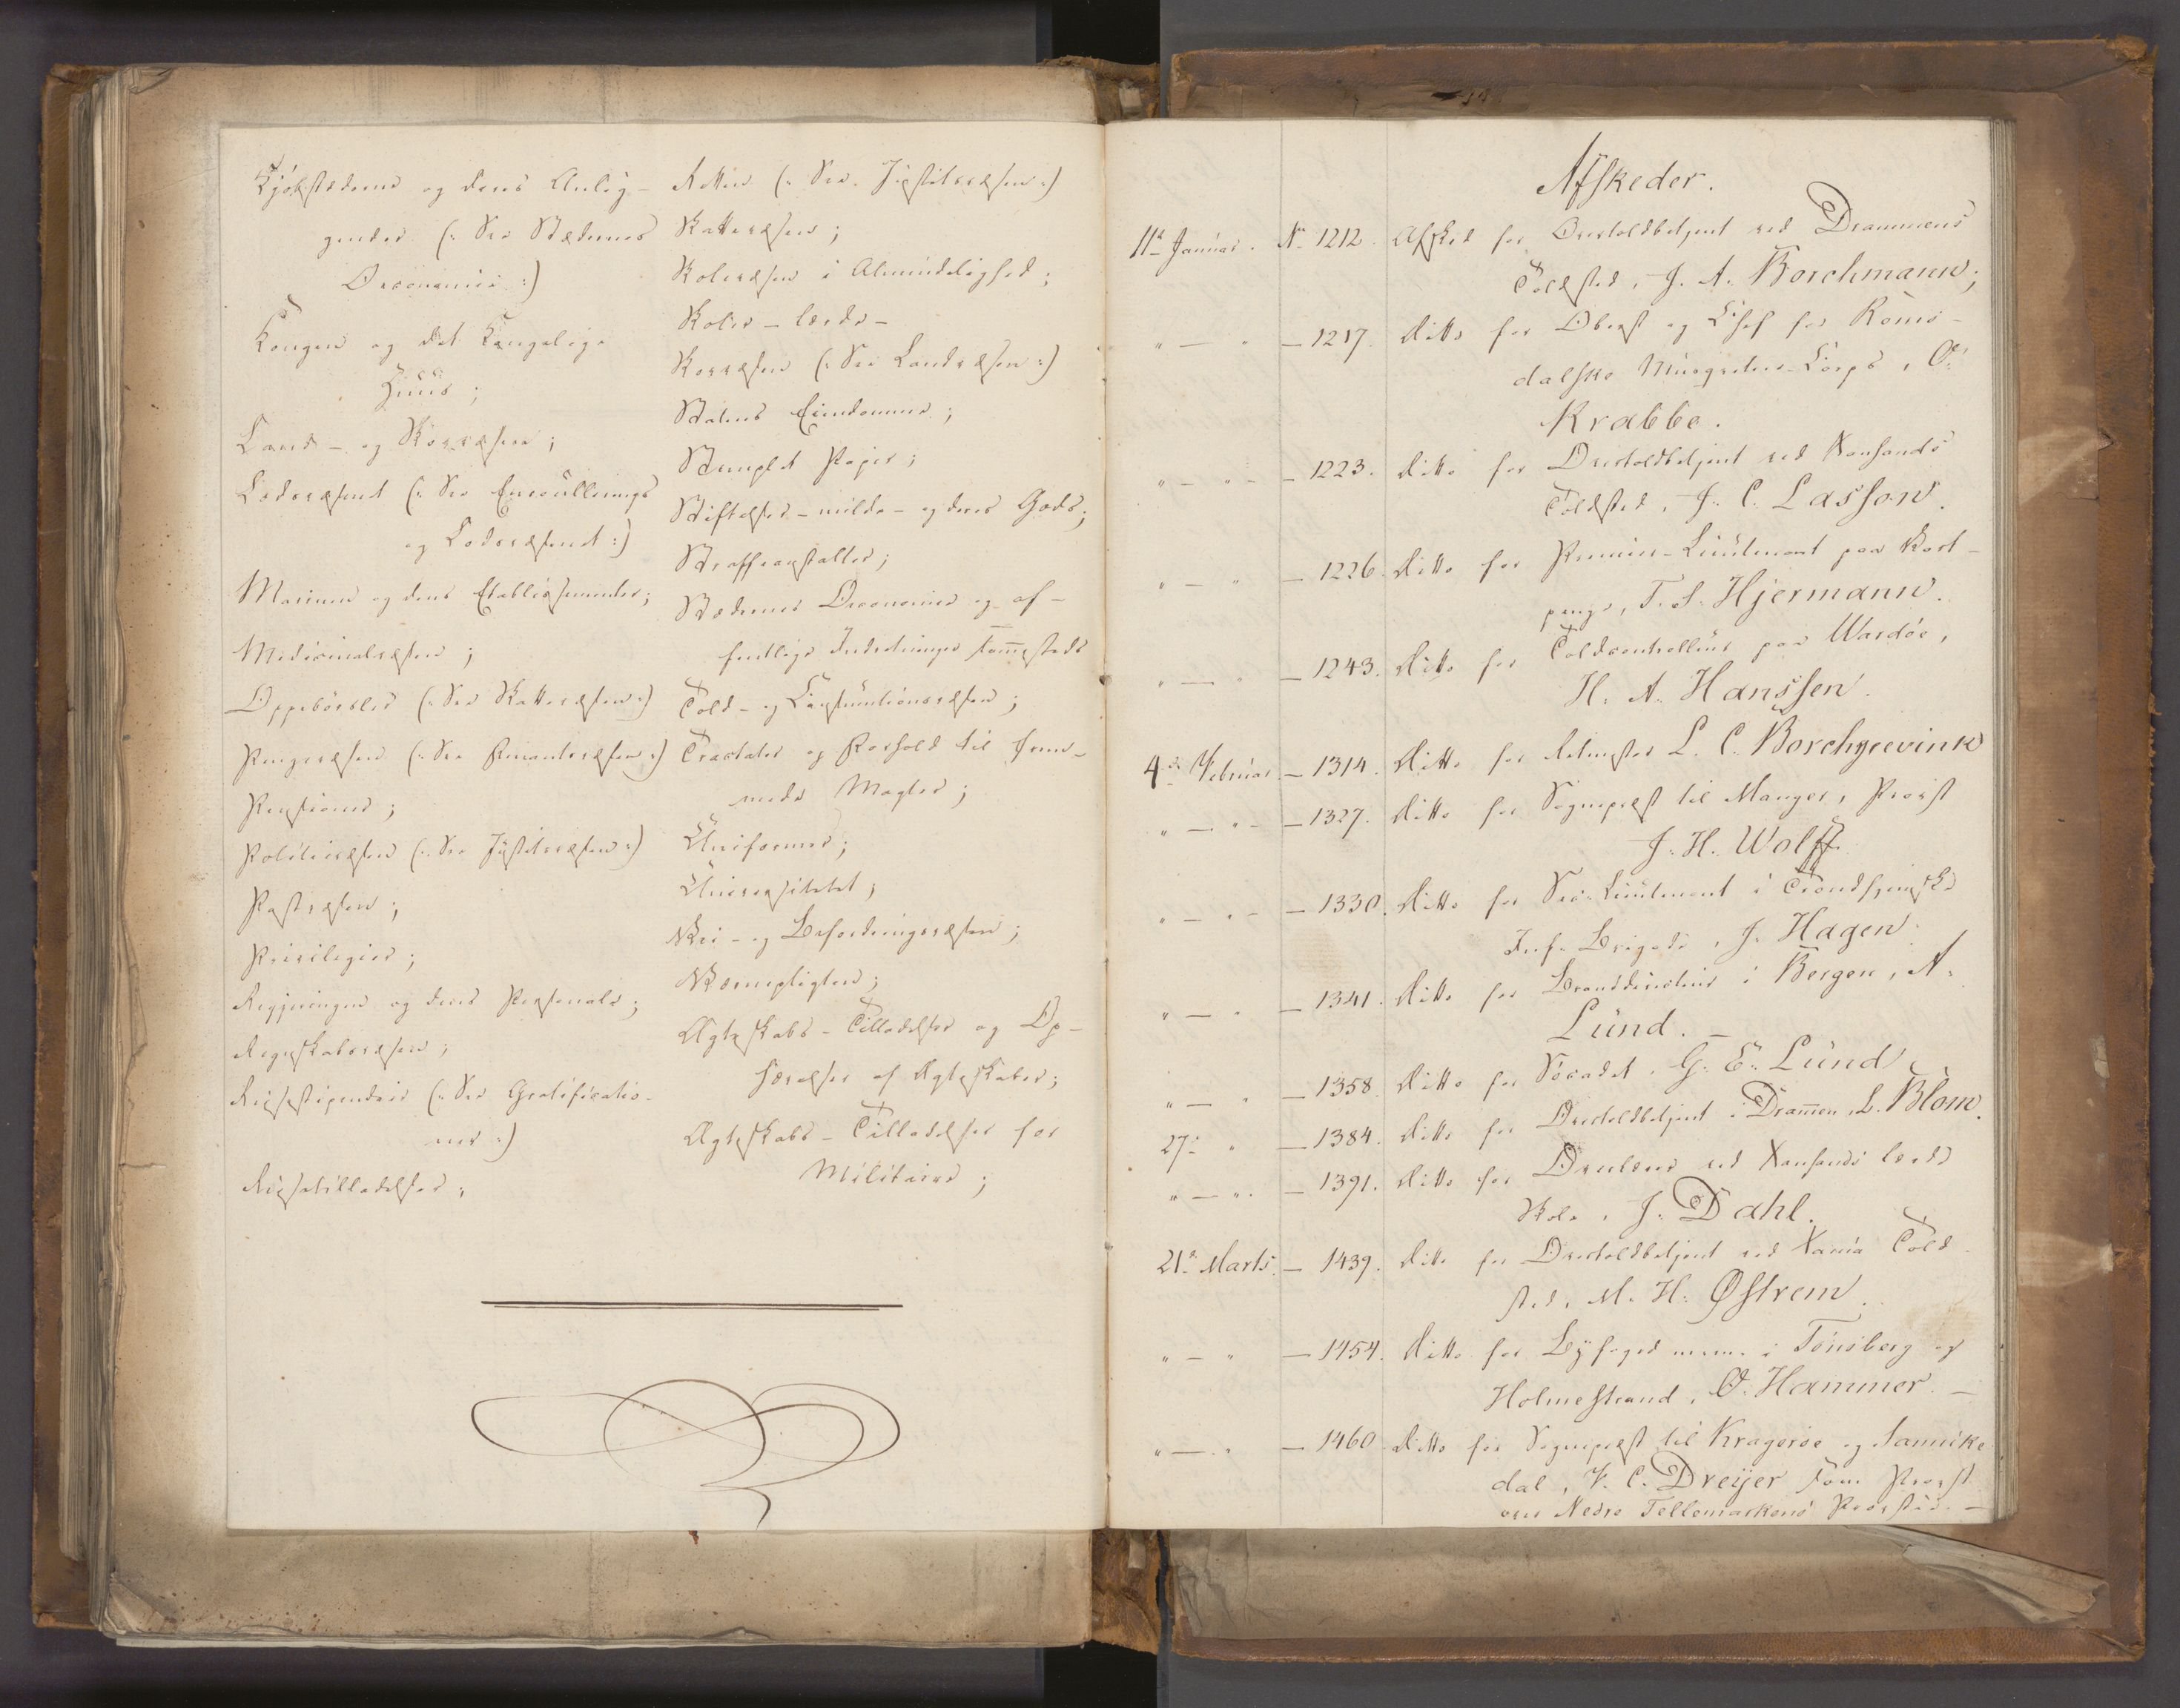 Kjøbstæderne og deres Anlig-
gender (: See Stædernes
Oeconomie :)
Kongen og det Kongelige
Huus;
Land- og Skovvæsen;
Lodsvæsenet (: See Enroullerings
og Lodsvæsenet :)
Marinen og dens Etablissementer;
Medicinalvæsen;
Oppebørsler (: See Skattevæsen :)
Pengevæsen (: See Finantsvæsen :)
Pensioner;
Politievæsen (: See Justitsvæsen :)
Postvæsen;
Privilegier;
Regjeringen og dens Personale;
Regnskabsvæsen;
Reisestipendier (: See Gratificatio-
ner :)
Reisetilladelser;
Retten (: See Justitsvæsen :)
Skattevæsen;
Skolevæsen i Almindelighed;
Skoler – lærde –
Skovvæsen (: See Landvæsen :)
Statens Eiendomme;
Stemplet Papir;
Stiftelser – milde – og deres Gods;
Straffeanstalter;
Stædernes Oeconomie og of-
fentlige Indretninger sammesteds
Told- og Consumtionsvæsen;
Tractater og Forhold til frem-
mede Magter;
Uniformer;
Universitetet;
Vei- og Befordringsvæsen;
Værnepligten;
Ægteskabs-Tilladelser og Op-
hævelser af Ægteskaber;
Ægteskabs-Tilladelser for
Militaire;
Afskeder.
11te Januar. No 1212. Afsked for Overtoldbetjent ved Drammens
Toldsted, J. A. Borchmann;
" — " — 1217. Ditto for Oberst og Chef for Roms-
dalske Musqueteer-Corps, O.
Krabbe.
" — " — 1223. Ditto for Overtoldbetjent ved Xansands
Toldsted, J. C. Lasson.
" — " — 1226. Ditto for Premier-Lieutenant paa Vart-
penge, T. S. Hjermann.
" — " — 1243. Ditto for Toldcontrolleur paa Wardøe,
H. A. Hanssen.
4de Februar. — 1314. Ditto for Ritmester L. C. Borchgrevink
" — " — 1327. Ditto for Sognepræst til Manger, Provst
J. H. Wolff
" — " — 1330. Ditto for Sec-Lieutenant i Trondhjemske
Inf. Brigade, J. Hagen.
" — " — 1341. Ditto for Branddirecteur i Bergen, A.
Lund. —
" — " — 1358. Ditto for Søcadet, G. E. Lund
27de " — 1384. Ditto for Overtoldbetjent i Drammen, L. Blom.
" — " — 1391. Ditto for Overlærer ved Xansands lærde
Skole, J. Dahl.
21de Marts. — 1439. Ditto for Overtoldbetjent ved Xania Told
sted, M. H. Østrem.
" — " — 1454. Ditto for Byfoged m. m. i Tønsberg og
Holmestrand, O. Hammer. —
" — " — 1460. Ditto for Sognepræst til Kragerøe og Sannike
dal, V. C. Dreyer som Provst
over Nedre Tellemarkens Provstie. —